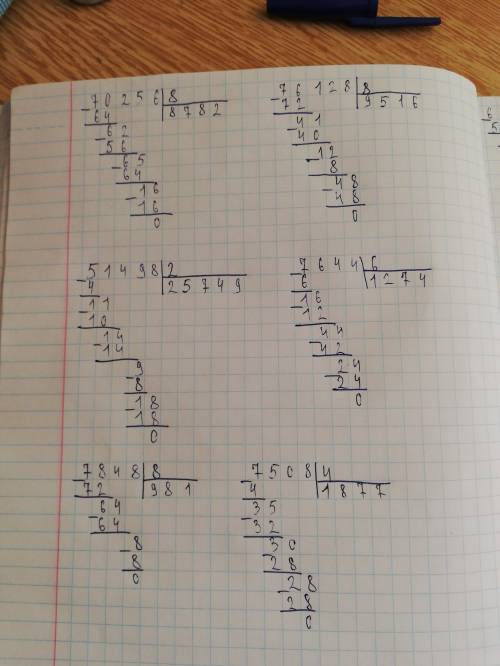 -70256|8
64 |8782
-62
56
-65
64
-16
16
0
-76128|8
72 |9516
-41
40
-12
8
-48
48
0
-51498|2
4 |25749
-11
10
-14
14
-9
8
-18
18
0
-7644|6
6 |1274
-16
12
-44
42
-24
24
0
-7848|8
72 |981
-64
64
-8
8
0
-7508|4
4 |1877
-35
32
-30
28
-28
28
0